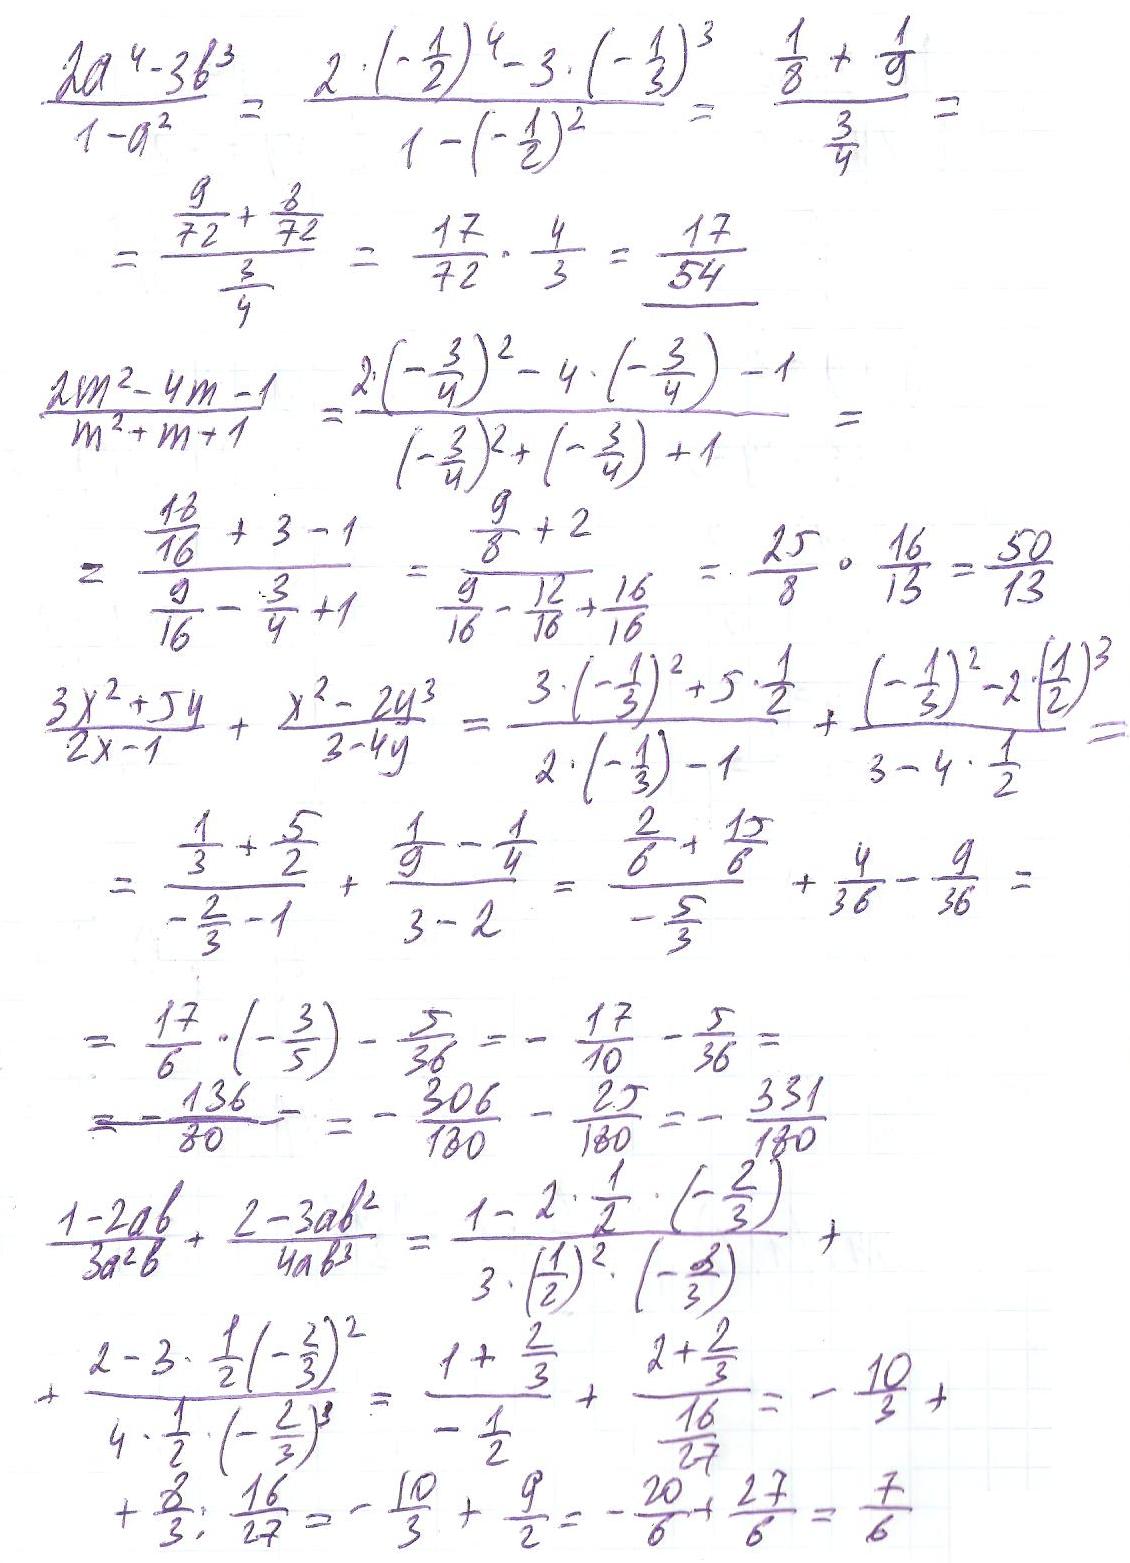 (2a^4 - 3b^3)/(1 - a^2) = (2 · (-1/2)^4 - 3 · (-1/3)^3)/(1 - (-1/2)^2) = (1/8 + 1/9)/(3/4) =
= (9/72 + 8/72)/(3/4) = 17/72 · 4/3 = 17/54
(2m^2 - 4m - 1)/(m^2 + m + 1) = (2·(-3/4)^2 - 4 · (-3/4) - 1)/((-3/4)^2 + (-3/4) + 1) =
= (18/16 + 3 - 1)/(9/16 - 3/4 + 1) = (9/8 + 2)/(9/16 - 12/16 + 16/16) = 25/8 · 16/13 = 50/13
(3x^2 + 5y)/(2x - 1) + (x^2 - 2y^3)/(3 - 4y) = (3·(-1/3)^2 + 5·1/2)/(2·(-1/3) - 1) + ((-1/3)^2 - 2·(1/2)^3)/(3 - 4·1/2) =
= (1/3 + 5/2)/(-2/3 - 1) + (1/9 - 1/4)/(3 - 2) = (2/6 + 15/6)/(-5/3) + 4/36 - 9/36 =
= 17/6 · (-3/5) - 5/36 = - 17/10 - 5/36 =
= - 136/80 - = - 306/180 - 25/180 = - 331/180
(1 - 2ab)/(3a^2b) + (2 - 3ab^2)/(4ab^3) = (1 - 2·1/2·(-2/3))/(3·(1/2)^2·(-2/3)) +
+ (2 - 3·1/2(-2/3)^2)/(4·1/2·(-2/3)^3) = (1 + 2/3)/(-1/2) + (2 + 2/3)/(16/27) = - 10/3 +
+ 8/3 : 16/27 = - 10/3 + 9/2 = - 20/6 + 27/6 = 7/6